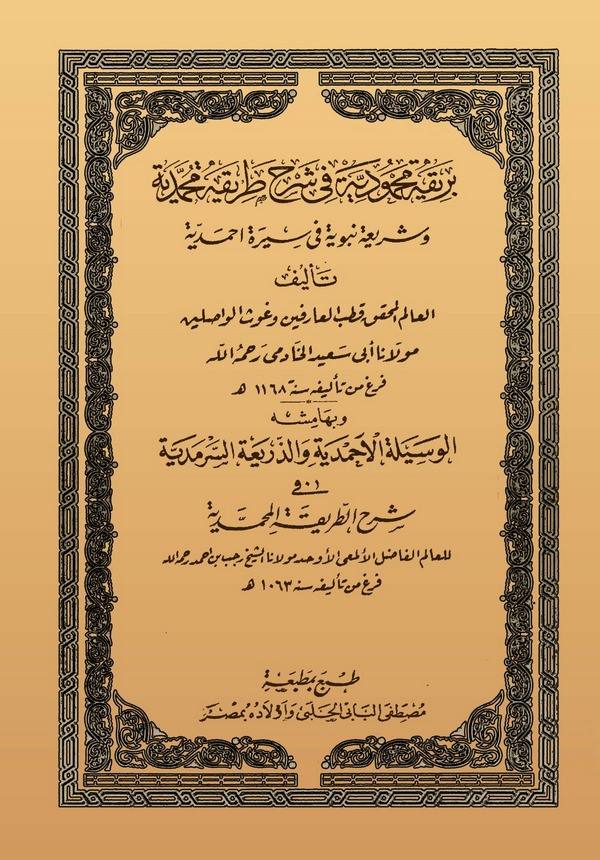 بريقة محمودية في شرح طريقة محمدية
وشريعة نبوية في سيرة احمدية
تأليف
العالم المحقق قطب العارفين وغوث الواصلين
مولانا أبى سعيد الخادمى رحمه الله
فرغ من تأليفه سنة ١١٦٨ ھ
وبهامشه
الوسيلة الأحمدية والذريعة السرمدية
فى
شرح الطريقة المحمدية
للعالم الفاضل الألمعى الأوحد مولانا الشيخ رجب بن احمد رحمه الله
فرغ من تأليفه سنه ١٠٦٣ ھ
طبع بمطبعة
مصطفى البابى الحلبى وأولاده بمصر